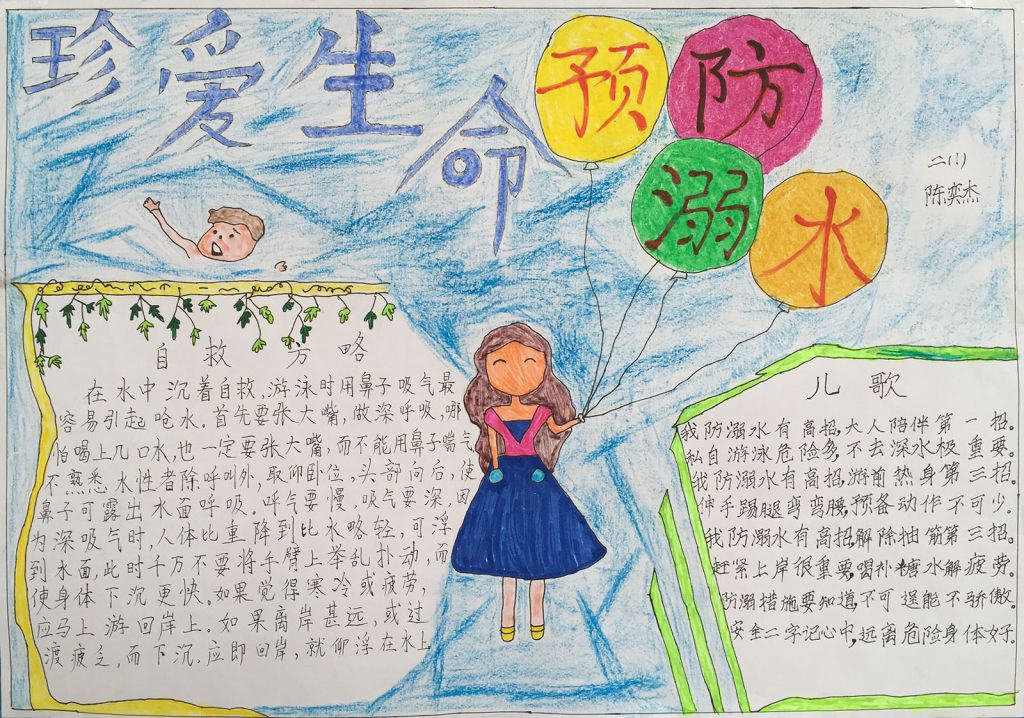 珍爱生命
预防溺水
二(1)
陈奕杰
自救方略
在水中沉着自救,游泳时用鼻子吸气最
容易引起呛水.首先要张大嘴,做深呼吸,哪
怕喝上几口水,也一定要张大嘴,而不能用鼻子嘴气
不熟悉水性者除呼叫外,取仰卧位,头部向后,使
鼻子可露出水面呼吸.呼气要慢,吸气要深,因
为深吸气时,人体比重降到比水略轻,可浮
到水面,此时千万不要将手臂上举乱扑动,而
使身体下沉更快.如果觉得寒冷或疲劳,
应马上游回岸上.如果离岸甚远,或过
渡疲乏,而下沉,应即回岸,就仰浮在水上
儿歌
我防溺水有高招,大人陪伴第一招。
私自游泳危险多,不去深水极重要。
我防溺水有高招,游前热身第三招。
伸手踢腿弯弯腰,预备动作不可少。
我防溺水有高招,解除抽筋第三招。
赶紧上岸很重要,喝补糖水解疲劳。
防溺措施要知道,不可逞能不骄傲。
安全二字记心中,远离危险身体好。